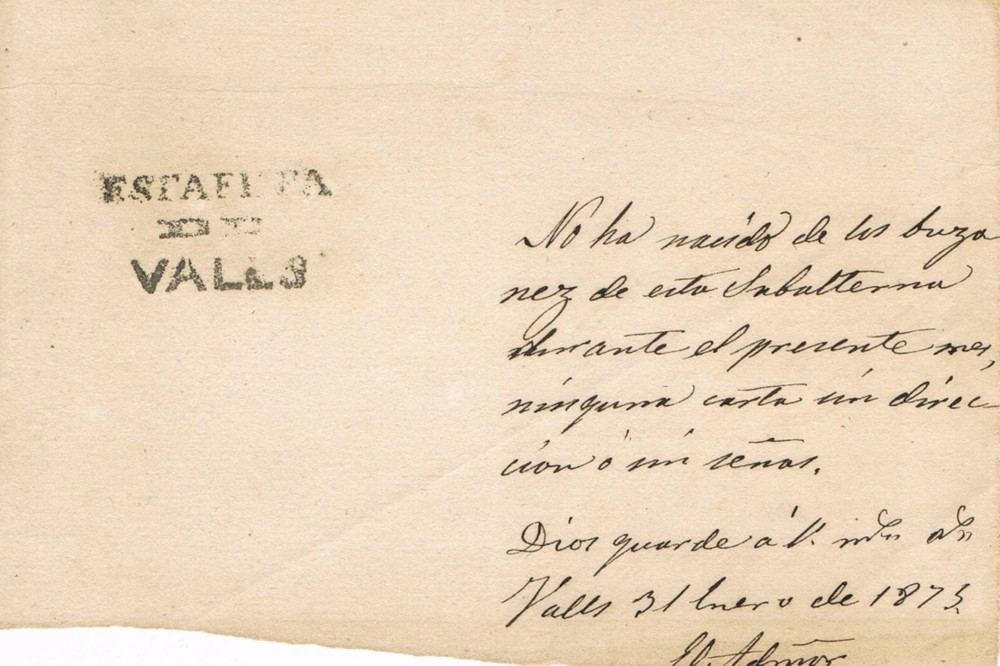 ESTAFETA
DE
VALLS
No ha nacido de los buzo
nez de esta Subalterna
durante el presente mes,
ninguna carta sin direc-
cion ó sin señas.
Dios guarde á V. ms as
Valls 31 Enero de 1873.
El Admor